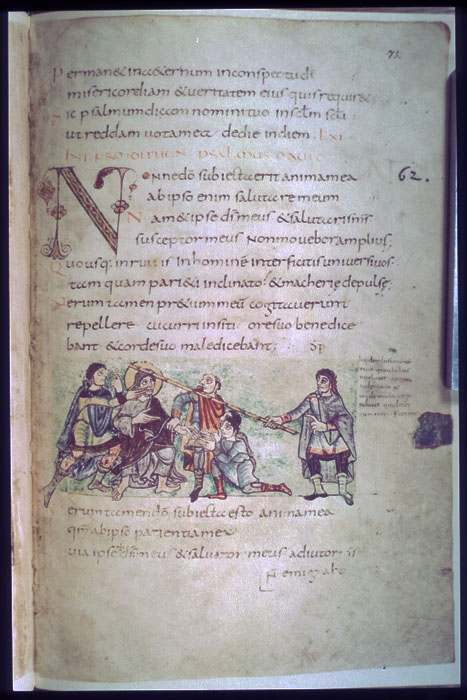 73.
Perman& in aeternum in conspectu dī
misericordiam & ueritatem eius quis requir&
Sic psalmum dicam nomini tuo in sclm scli
ut reddam uota mea de die in diem. LXI
PSALMUS DAUID
Nonne dō subiecta erit anima mea
62.
ab ipso enim salutare meum
Nam & ipse ds meus & salutaris ms
susceptor meus non mouebor amplius;
Quousq; inruitis in hominem interficitis uniuersi uos;
tam quam pari&i inclinato & macherie depulse;
Uerum tamen pr&ium meū cogitauerunt
repellere cucurri in siti ore suo benedice
bant & corde suo maledicebant; dp
Uerum tamen dō subiecta esto anima mea
qm ab ipso patientia mea
Quia ipse ds meus & saluator meus adiutor ms
n emigabo